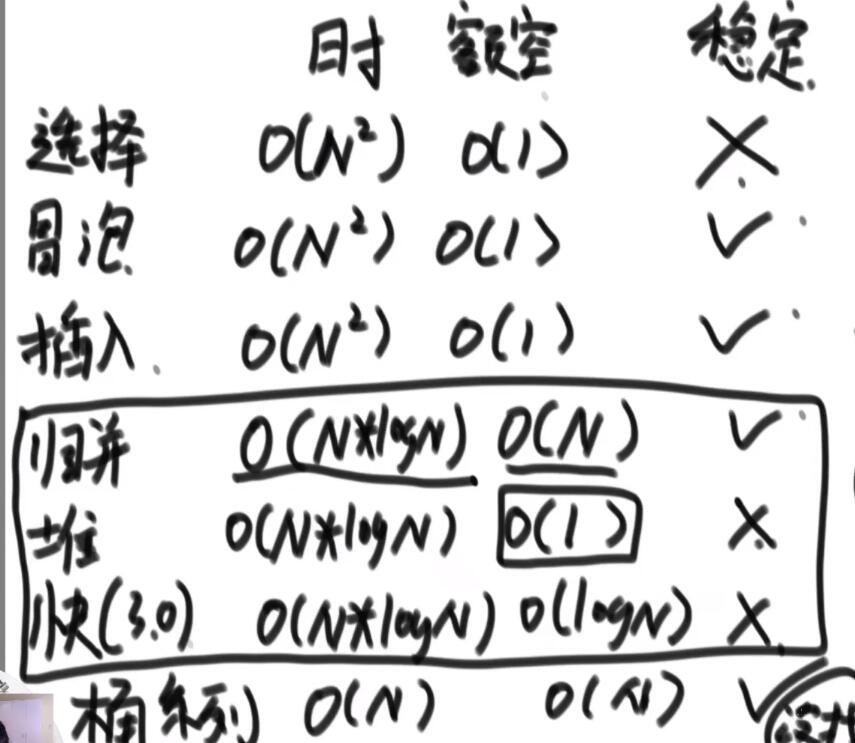 时 额空 稳定
选择 O(N²) O(1) ×
冒泡 O(N²) O(1) ✓
插入 O(N²) O(1) ✓
归并 O(N*logN) O(N) ✓
堆 O(N*logN) O(1) ×
快(3.0) O(N*logN) O(logN) ×
桶系列 O(N) O(N) ✓